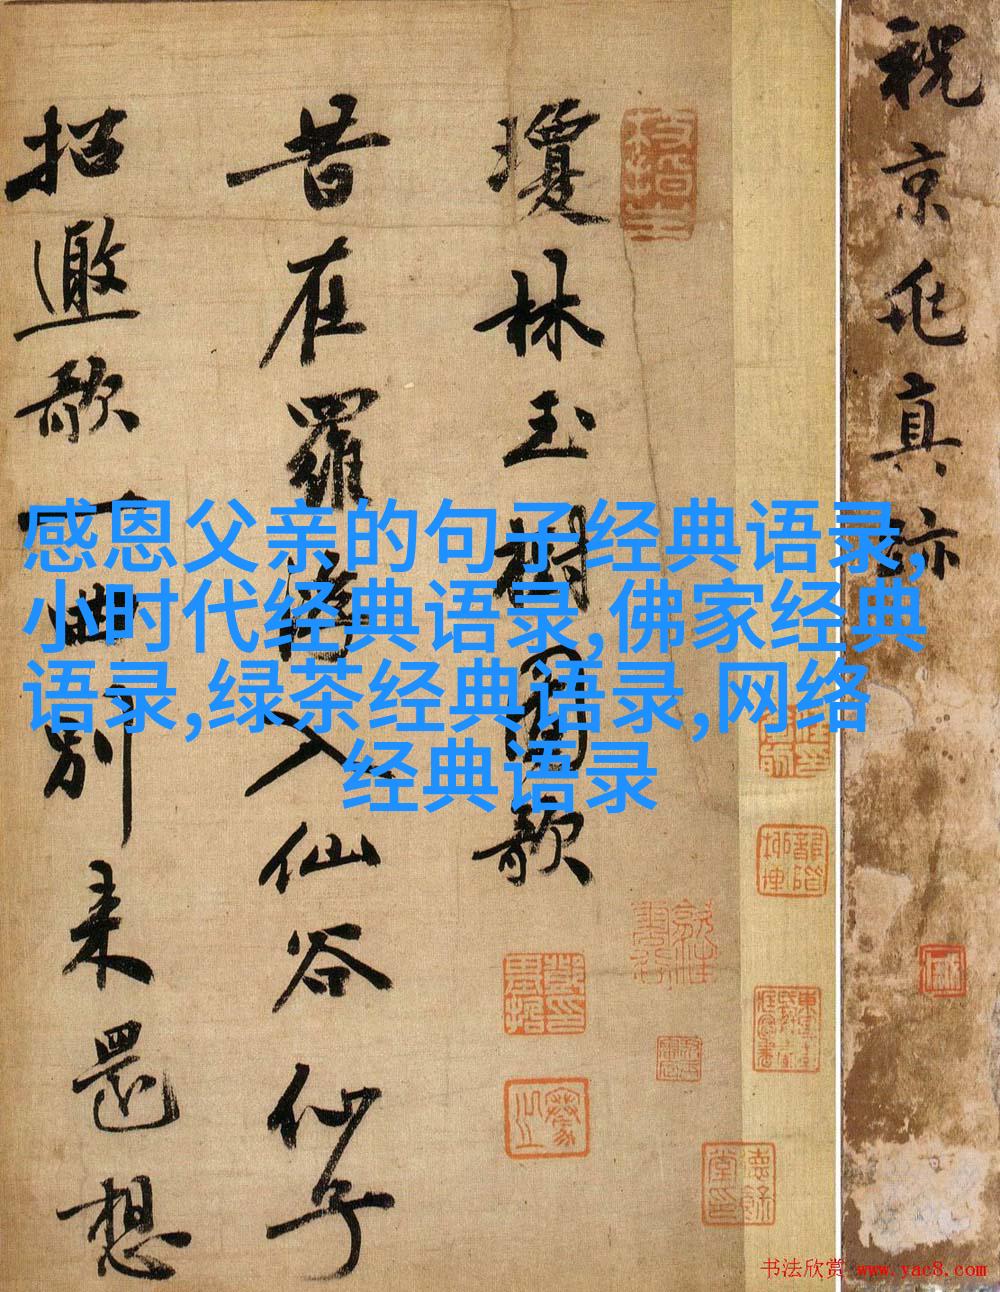 祝京兆真迹
瓊林玉樹齋歌
昔在羅浮入仙谷仙子
招邀歌一曲別來還想
感恩父亲的句子经典语录,
小时代经典语录,佛家经典
语录,绿茶经典语录,网络
经典语录
书法欣赏 www.yac8.com